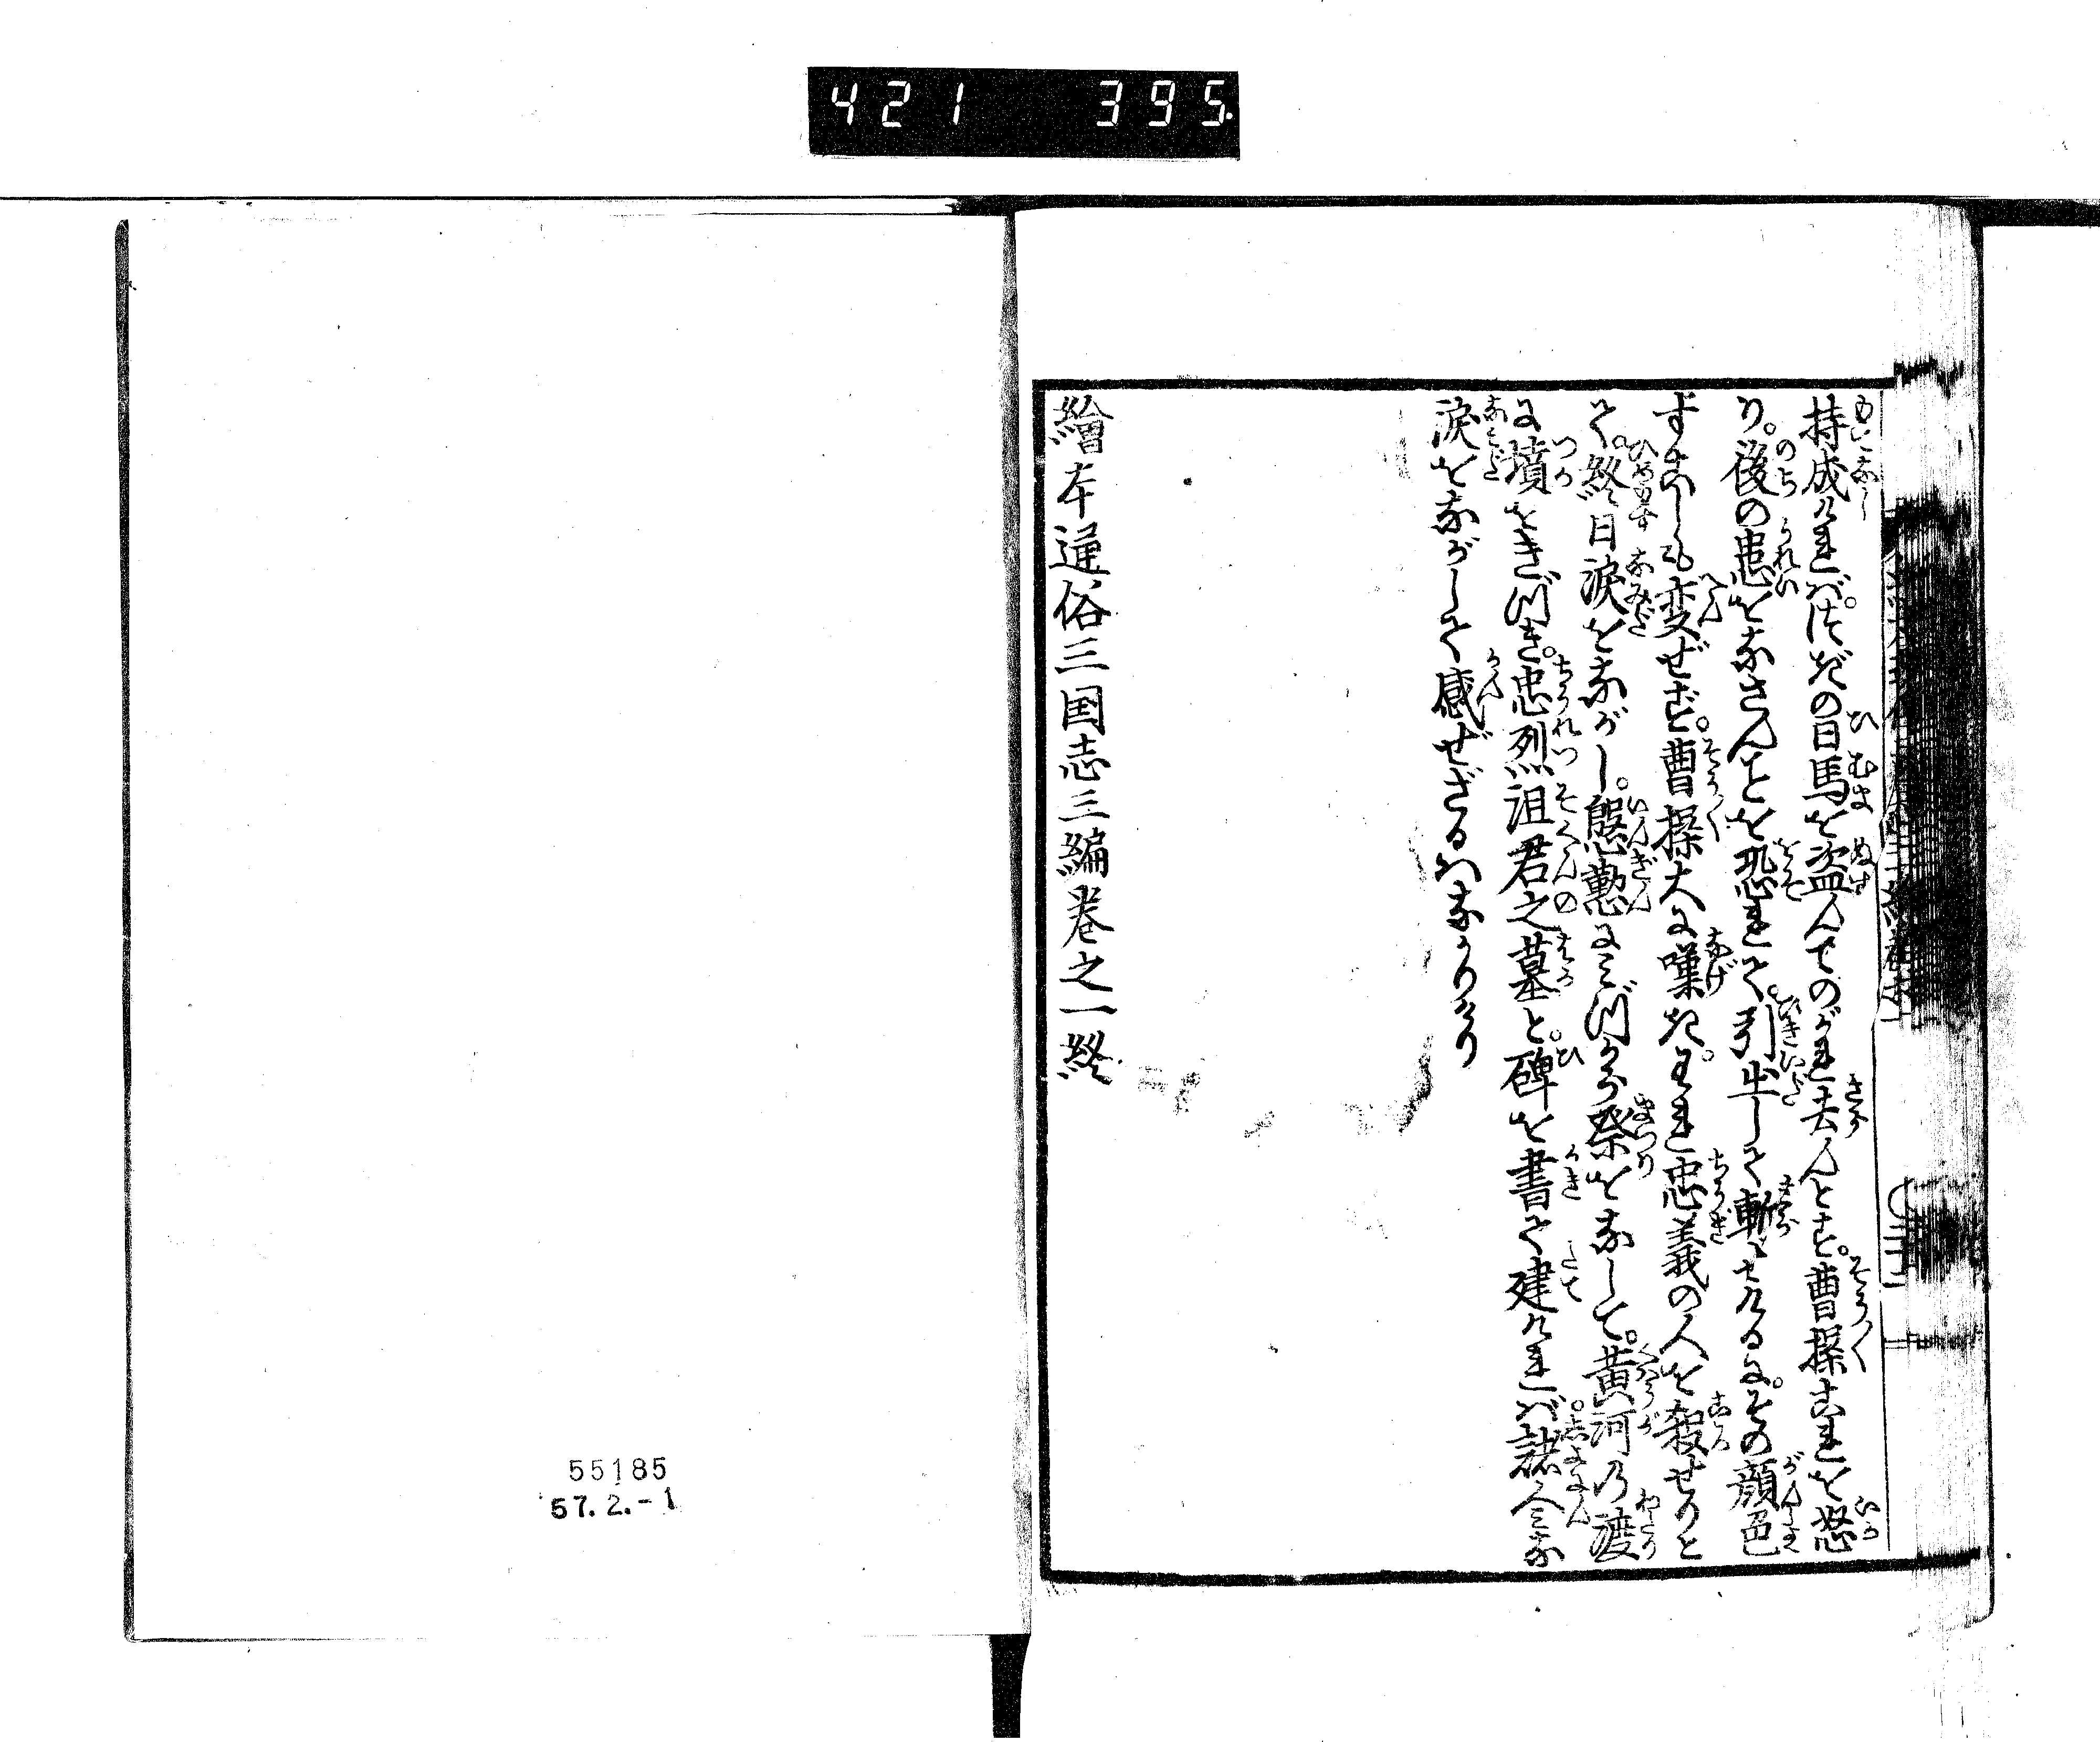 421 395
持成ければ。つぎの日馬を盗んでのがれ去んとす。曹操これを怒
り。後の患をなさんとを恐れて。引出して斬せけるに。その顔色
すこしも変ぜず。曹操大に嘆き。われ忠義の人を殺せりと
て。終日涙をながし。慇懃にみづから祭をなして。黄河の渡
に墳をきづき。忠烈沮君之墓と。碑を書て建ければ。諸人みな
涙をながして感ぜざるハなかりけり
繪本通俗三国志三編巻之一終
55185
57.2.-1